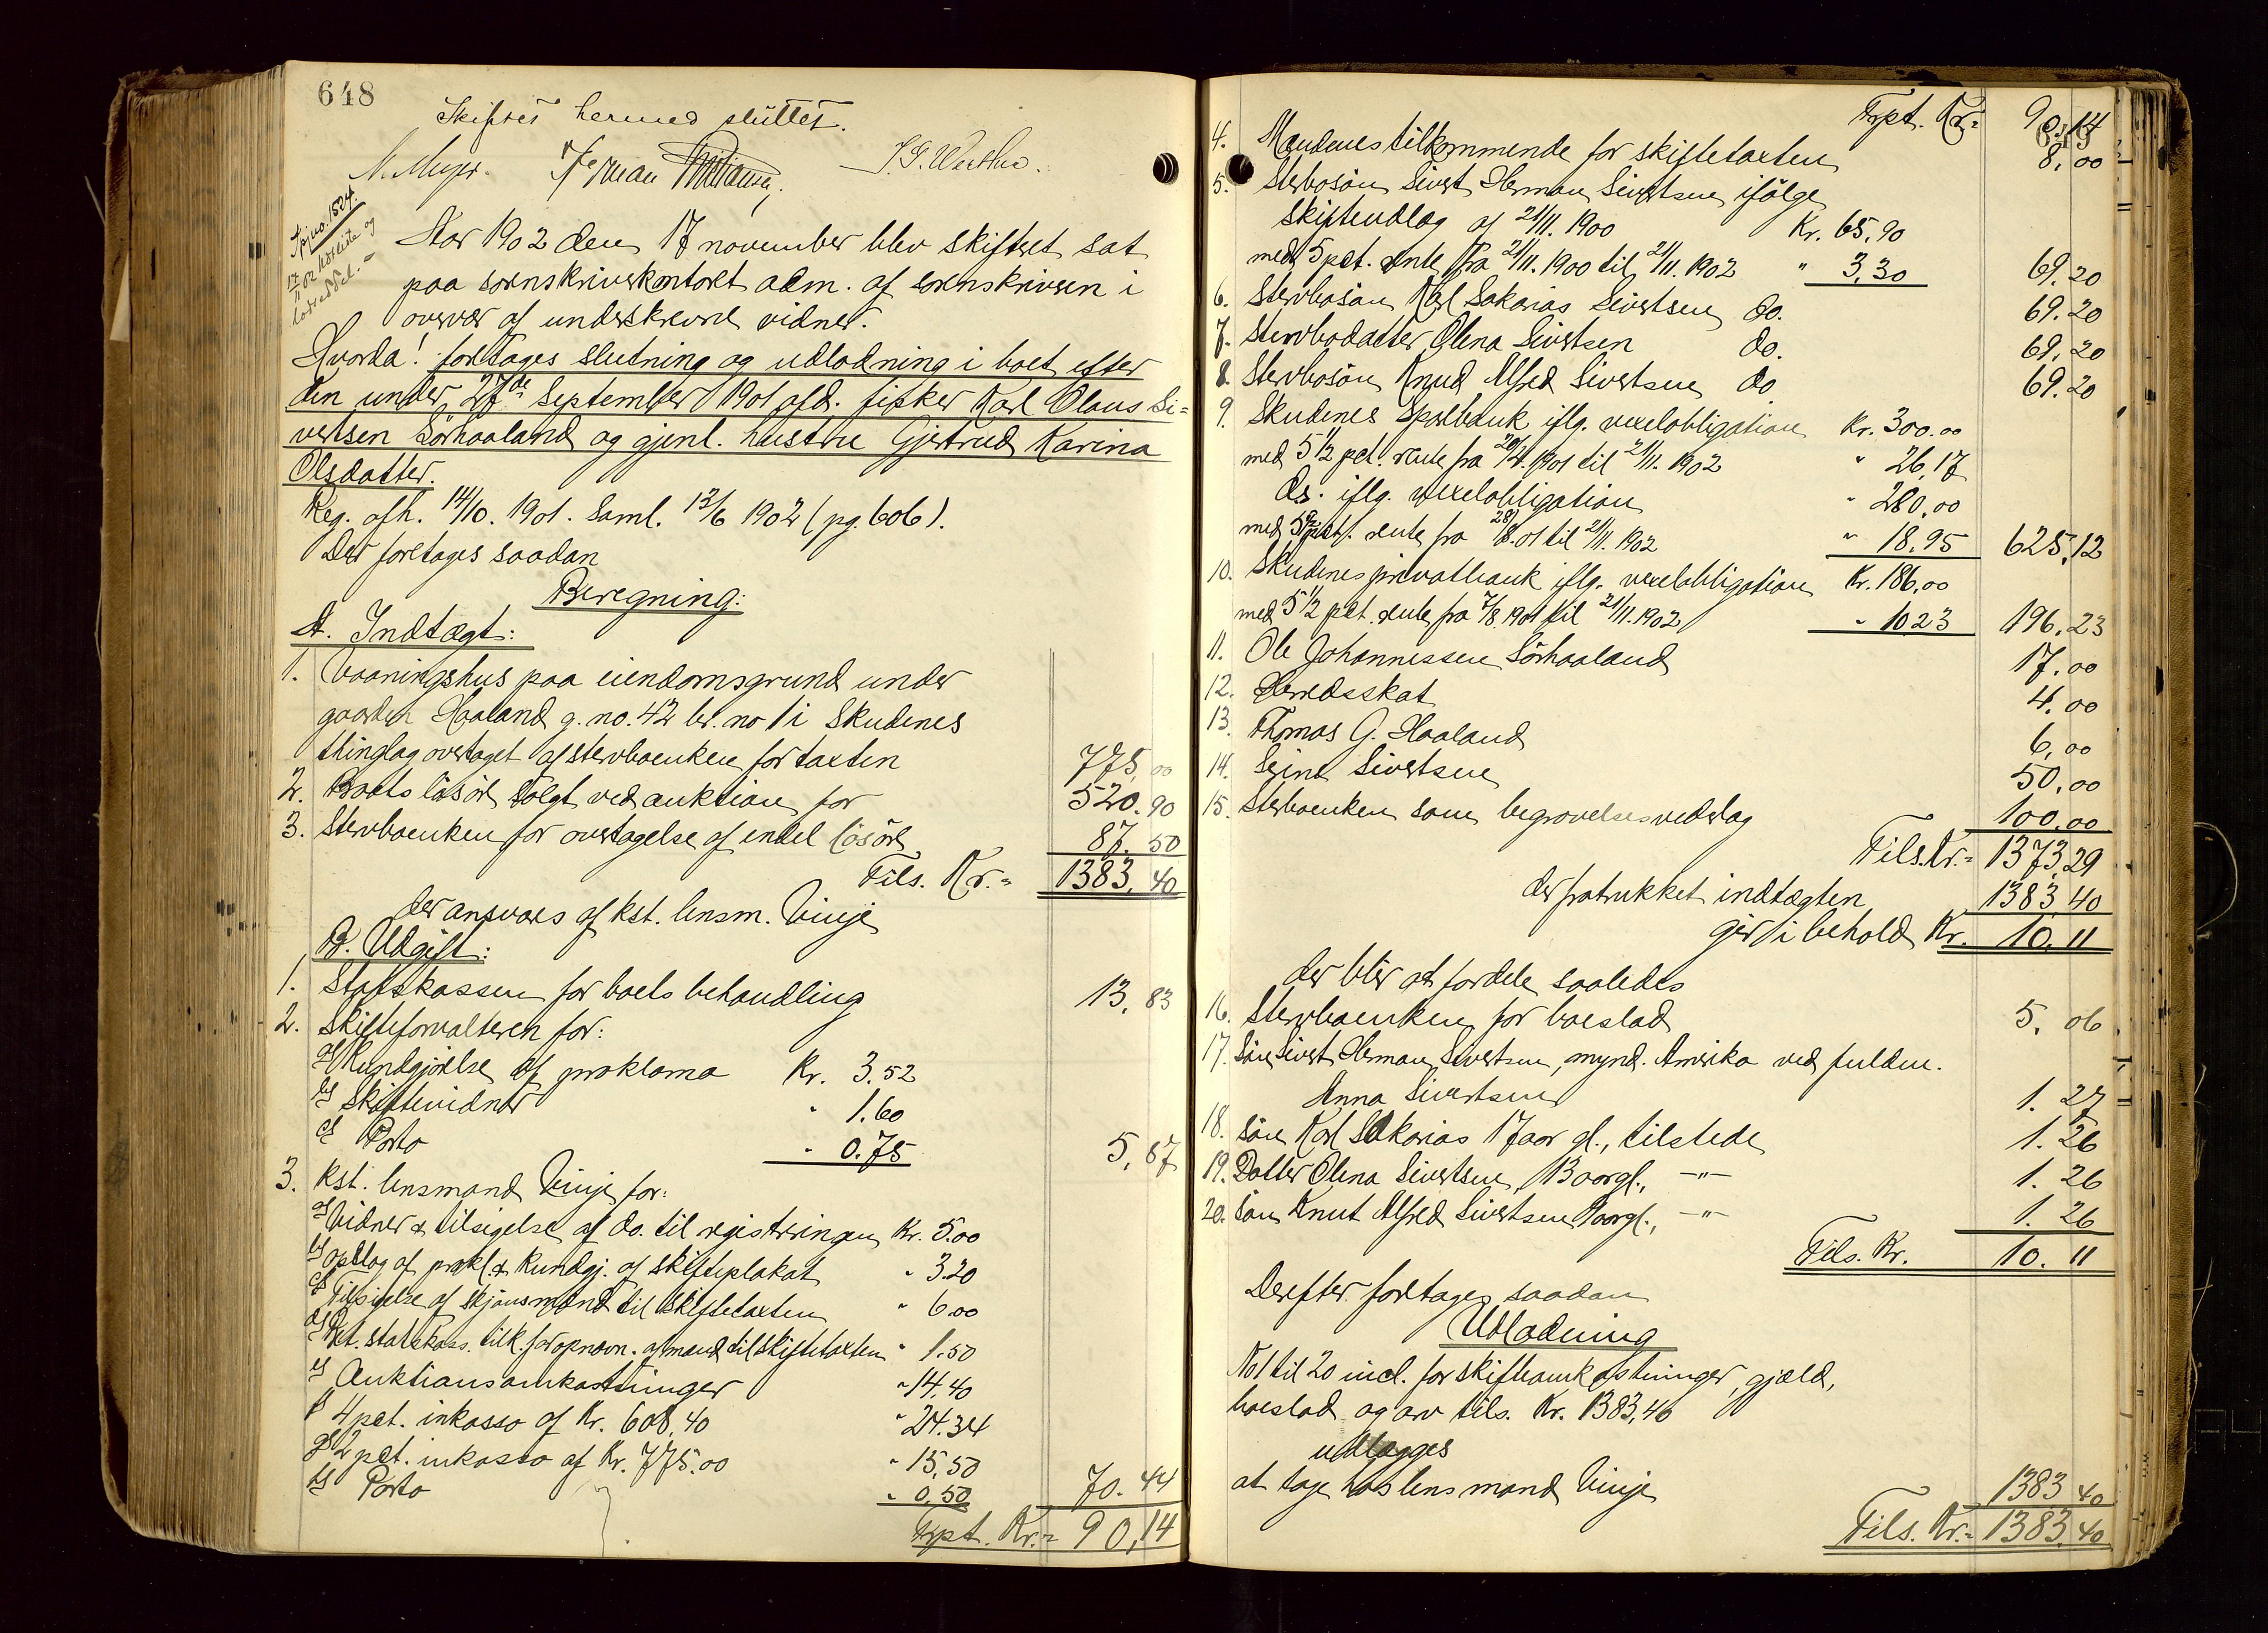 648
Skiftet hermed sluttet.
N. Meyer. Herman Kristiansen J. G. Werthu.
Kpj no. 1524.
Aar 1902 den 17 november blev skifteret sat
paa sorenskriverkontoret adm. af sorenskriveren i
overvær af underskrevne vidner.
Hvorda! foretages slutning og udlodning i boet efter
den under 27de September 1901 afd. fisker Karl Olaus Si=
vertsen Sörhaaland og gjenl. hustru Gjertrud Karina
Olsdatter.
Reg. afh. 14/10. 1901. Saml. 13/6 1902 (pg. 606).
Der foretages saadan
Beregning:
A. Indtægt:
1. Vaaningshus paa eiendomsgrund under
gaarden Haaland g. no. 42 br. no 1 i Skudenes
thinglag overtaget af stervboenken for taxten 775,00
2. Boets lösöre solgt ved auktion for 520.90
3. Stervboenken for overtagelse af endel lösöre 87.50
Tils. Kr.= 1383,40
der ansvares af kst. lensm. Vinje
B. Udgift:
1. Statskassen for boets behandling 13,83
2. Skifteforvalteren for:
a) Kundgjörelse af proklama Kr. 3.52
b) Skiftevidner " 1.60
c) Porto " 0.75 5,87
3. Kst. lensmand Vinje for:
a) Vidner & tilsigelse af do. til registreringen Kr. 5.00
b) Opslag af prokl. & kundgj. af skifteplakat " 3.20
c) Tilsigelse af skjönsmænd til skiftetaxten " 6.00
d) Ret. statskass. tilk. for opnævn. af mænd til skiftetaxten " 1.50
e) Auktionsomkostninger " 14.40
f) 4 pct. inkasso af Kr. 608,40 " 24.34
g) 2 pct. inkasso af Kr. 775.00 " 15,50
h) Porto " 0,50 70.44
Trpt. Kr.= 90,14
Trpt. Kr.= 90,14
4. Mændenes tilkommende for skiftetaxten 8,00
5. Stervbosön Sivert Herman Sivertsen ifölge
skifteudlæg af 21/11. 1900 Kr. 65,90
med 5 pct. rente fra 21/11. 1900 til 21/11. 1902 " 3,30 69.20
6. Stervbosön Karl Sakarias Sivertsen do. 69.20
7. Stervbodatter Olena Sivertsen do. 69,20
8. Stervbosön Knud Alfred Sivertsen do. 69.20
9. Skudenes Sparebank iflg. vexelobligation Kr. 300.00
med 5 1/2 pct. rente fra 20/4. 1901 til 21/11. 1902 " 26,17
do. iflg. vexelobligation " 280,00
med 5 1/2 pct. rente fra 28/8. 01 til 21/11. 1902 " 18.95 625,12
10. Skudenes privatbank iflg. vexelobligation Kr. 186,00
med 5 1/2 pct. rente fra 7/8 1901 til 21/11. 1902 " 10 23 196.23
11. Ole Johannessen Sörhaaland 17.00
12. Herredsskat 4.00
13. Thomas G. Haaland 6,00
14. Serine Sivertsen 50,00
15. Stervboenken som begravelsesvederlag 100,00
Tils. Kr.= 1373,29
der fratrukket indtægten 1383,40
gjör i behold Kr. 10,11
der blir at fordele saaledes
16. Stervboenken for boeslod 5,06
17. Sön Sivert Herman Sivertsen, mynd. Amerika ved fuldm.
Anna Sivertsen 1.27
18. Sön Karl Sakarias 17 aar gl., tilstede 1.26
19. Datter Olena Sivertsen 13 aar gl., —"— 1.26
20. Sön Knut Alfred Sivertsen aar gl., —"— 1.26
Tils. Kr. 10.11
Derefter foretages saadan
Udlodning
No 1 til 20 incl. for skifteomkostninger, gjæld,
boeslod og arv tils. Kr. 1383,40
udlægges
at tage hos lensmand Vinje 1383 40
Tils. Kr.= 1383,40